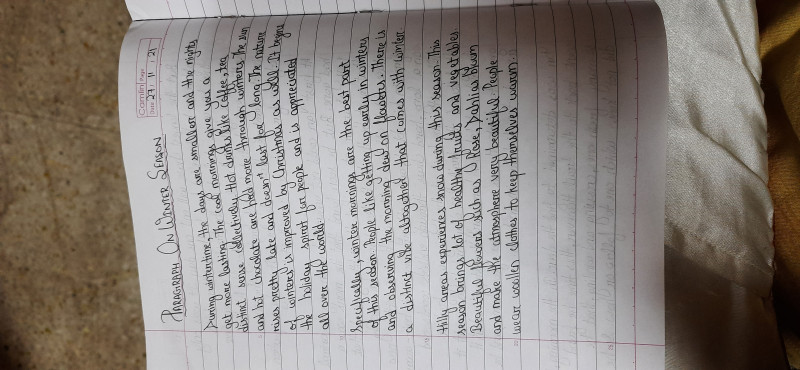 Camlin Page
Date 27 11 21
PARAGRAPH ON WINTER SEASON
During wintertime, the days are smaller and the nights
get more lasting. The cool mornings give you a
distinct sense collectively. Hot drinks like coffee, tea,
and hot chocolate are liked more through winters. The sun
rises pretty late and doesn't last for long. The nature
of winters is improved by Christmas as well. It begins
the holiday spirit for people and is appreciated
all over the world.
Specifically, winter mornings are the best part
of this season. People like getting up early in winters
and observing the morning dew on flowers. There is
a distinct vibe altogether that comes with winter.
Hilly areas experiences snow during this season. This
season brings lot of healthy fruits and vegetables
Beautiful flowers such as Rose, Dahlias bloom
and make the atmosphere very beautiful. People
wear woollen clothes to keep themselves warm.